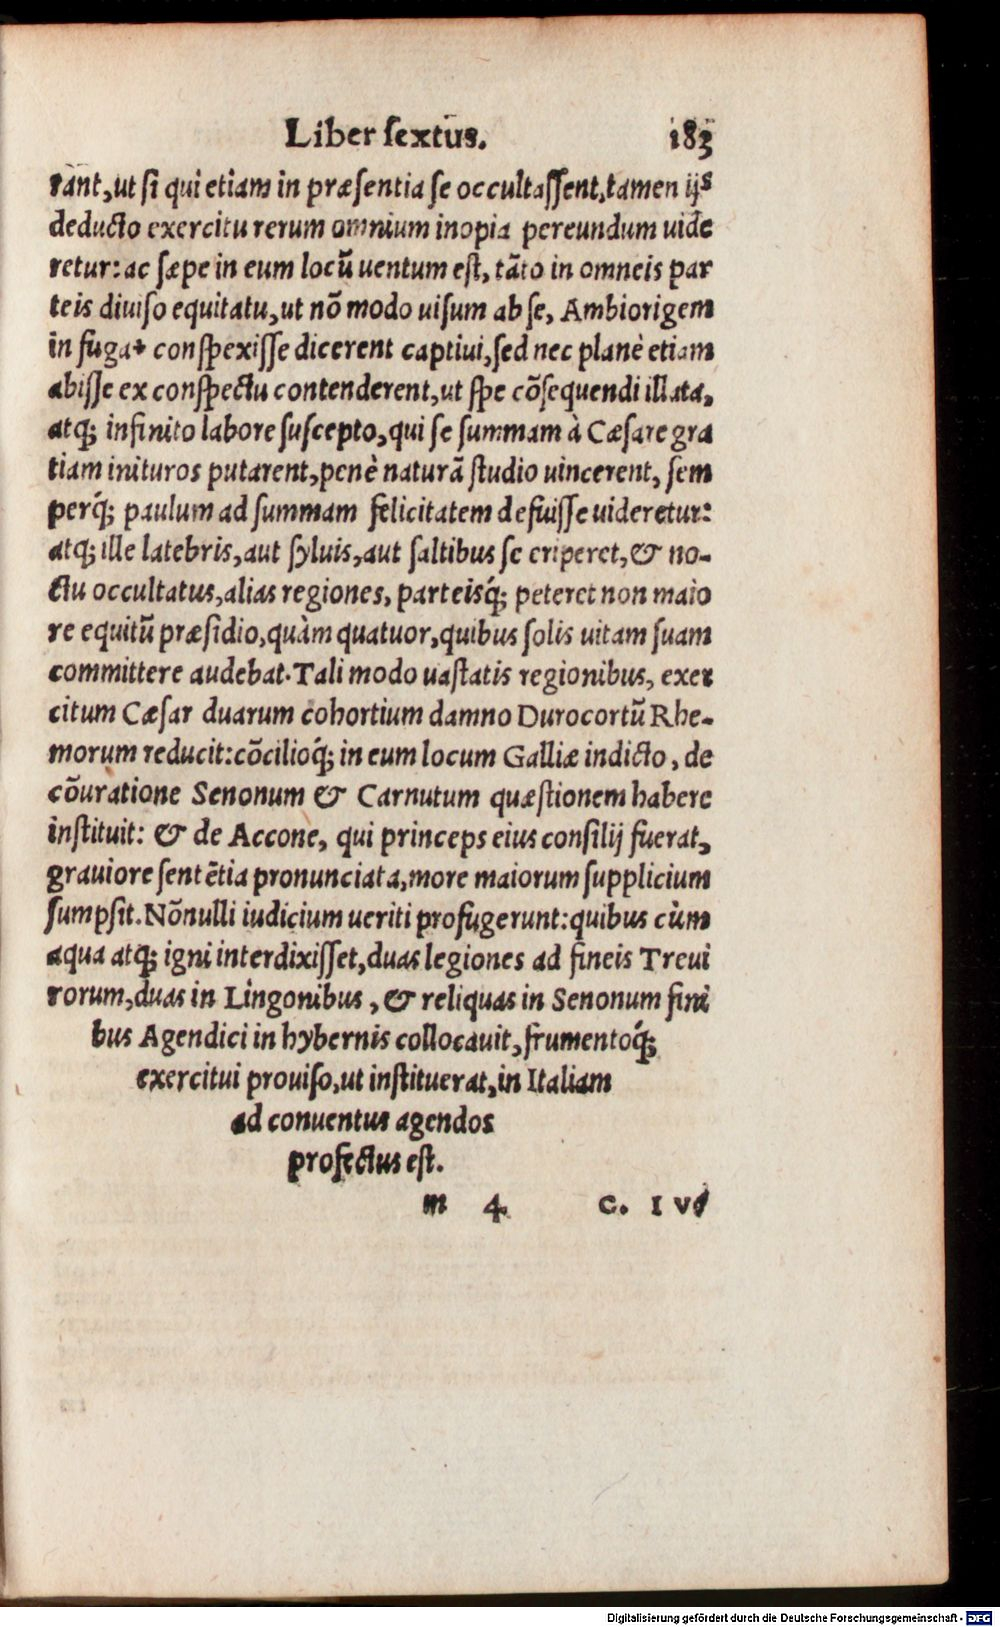 Liber ſextus. 183
rant, ut ſi qui etiam in præſentia ſe occultaſſent, tamen ijs
deducto exercitu rerum omnium inopia pereundum uide
retur: ac ſæpe in eum locū uentum eſt, tāto in omneis par
teis diuiſo equitatu, ut nō modo uiſum ab ſe, Ambiorigem
in fuga conſpexiſſe dicerent captiui, ſed nec planè etiam
abiſſe ex conſpectu contenderent, ut ſpe cōſequendi illata,
atq; infinito labore ſuſcepto, qui ſe ſummam à Cæſare gra
tiam inituros putarent, penè naturā ſtudio uincerent, ſem
perq́; paulum ad ſummam felicitatem defuiſſe uideretur:
atq; ille latebris, aut ſyluis, aut ſaltibus ſe eriperet, & no-
ctu occultatus, alias regiones, parteisq́; peteret non maio
re equitū præſidio, quàm quatuor, quibus ſolis uitam ſuam
committere audebat. Tali modo uaſtatis regionibus, exer
citum Cæſar duarum cohortium damno Durocortū Rhe-
morum reducit: cōcilioq́; in eum locum Galliæ indicto, de
cōiuratione Senonum & Carnutum quæſtionem habere
inſtituit: & de Accone, qui princeps eius conſilij fuerat,
grauiore ſentētia pronunciata, more maiorum ſupplicium
ſumpſit. Nōnulli iudicium ueriti profugerunt: quibus cùm
aqua atq; igni interdixiſſet, duas legiones ad fineis Treui
rorum, duas in Lingonibus, & reliquas in Senonum fini
bus Agendici in hybernis collocauit, frumentoq́;
exercitui prouiſo, ut inſtituerat, in Italiam
ad conuentus agendos
profectus eſt.
m 4 C. IV
Digitalisierung gefördert durch die Deutsche Forschungsgemeinschaft - DFG